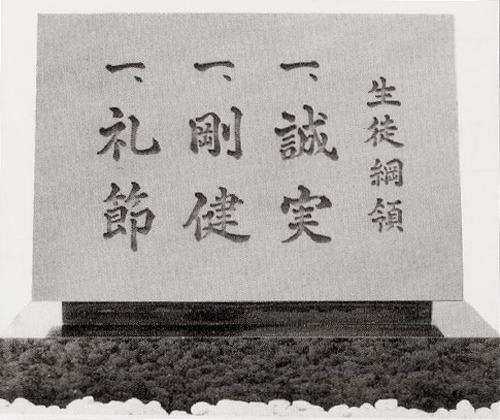 生徒綱領
一、誠実
一、剛健
一、礼節